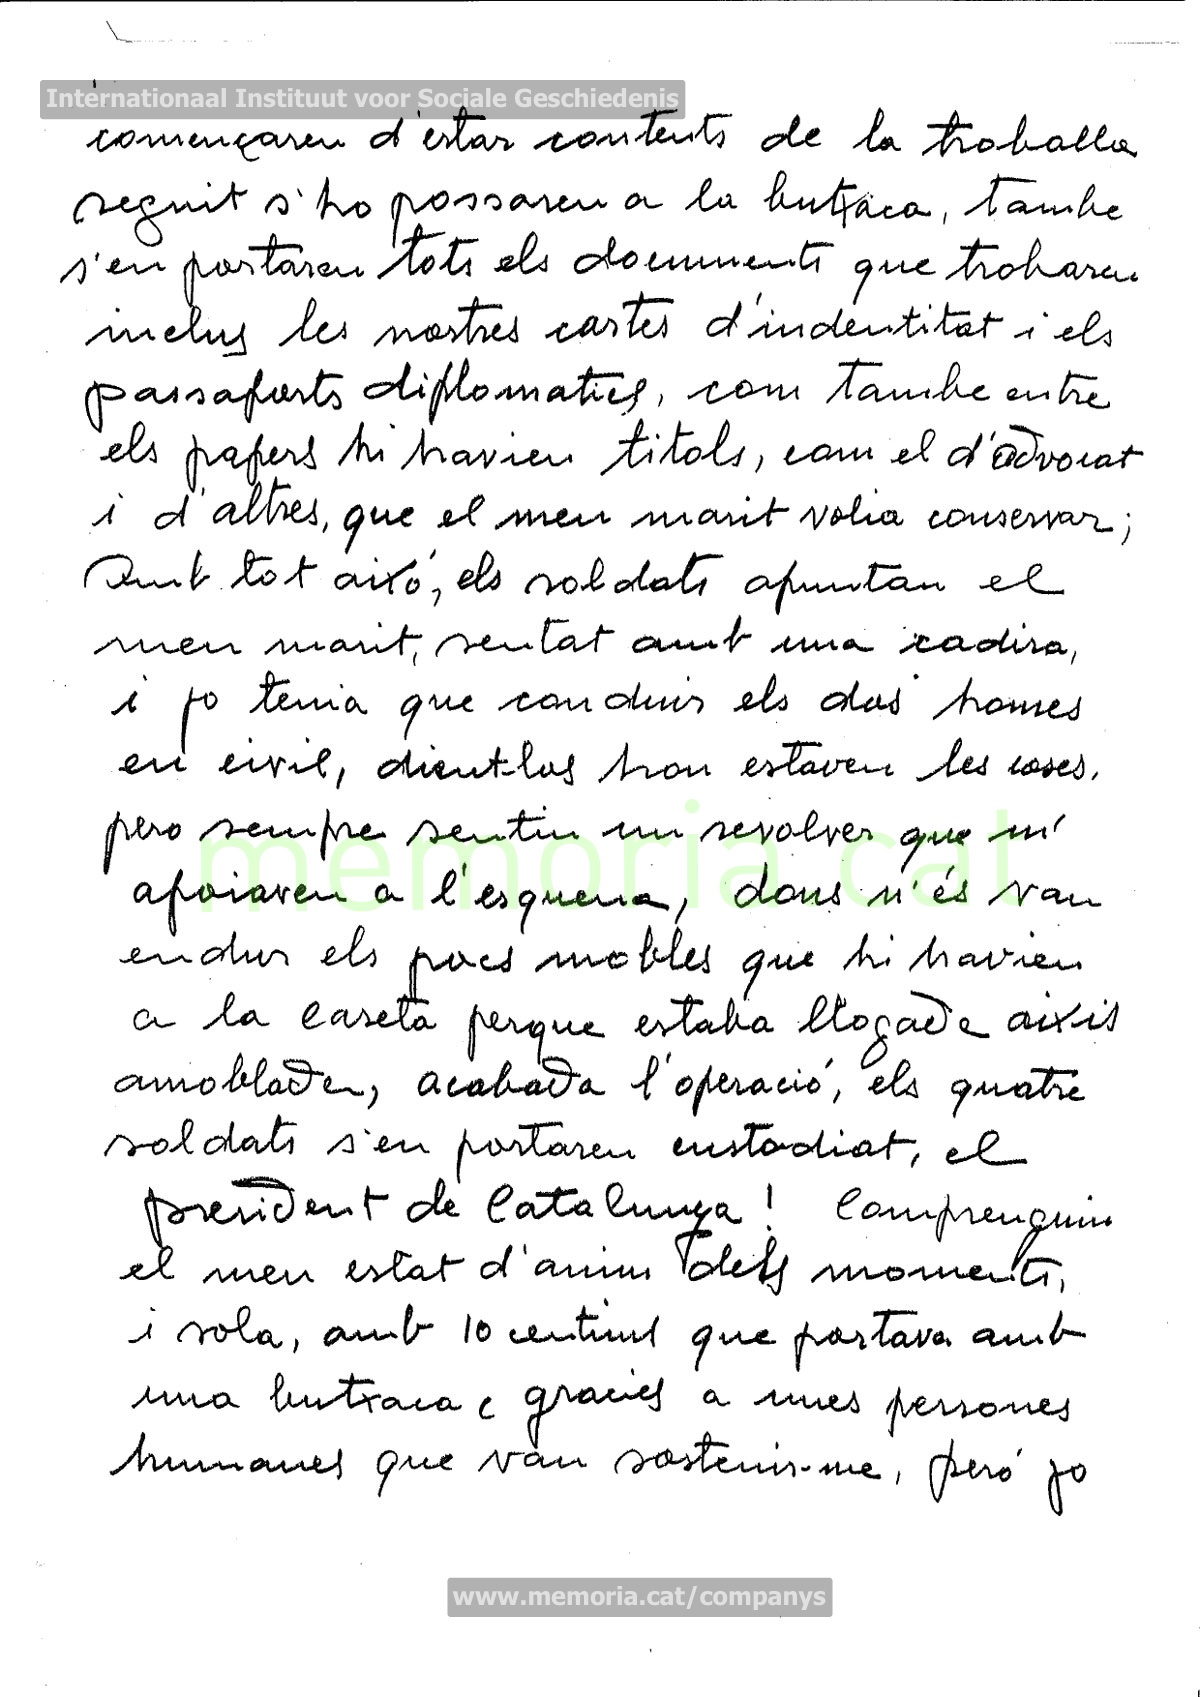 Internationaal Instituut voor Sociale Geschiedenis
començaren d'estar contents de la troballa
seguit s'ho possaren a la butxaca, tambe
s'en portaren tots els documents que trobaren
inclus les nostres cartes d'indentitat i els
passaports diplomatics, com tambe entre
els papers hi havien titols, com el d'advocat
i d'altres, que el meu marit volia conservar;
Amb tot aixó, els soldats apuntan el
meu marit, sentat amb una cadira,
i jo tenia que conduir els dos homes
en civil, dient-los hon estaven les coses,
pero sempre sentin un revolver que m'
apoiaven a l'esquena, dons n'és van
endur els pocs mobles que hi havien
a la caseta perque estaba llogada aixis
amoblada, acabada l'operació, els quatre
soldats s'en portaren custodiat, el
president de Catalunya! Comprenguin
el meu estat d'anim dels moments,
i sola, amb 10 centims que portava amb
una butxaca e gracies a unes persones
humanes que van sostenir-me, peró jo
memoria.cat
www.memoria.cat/companys